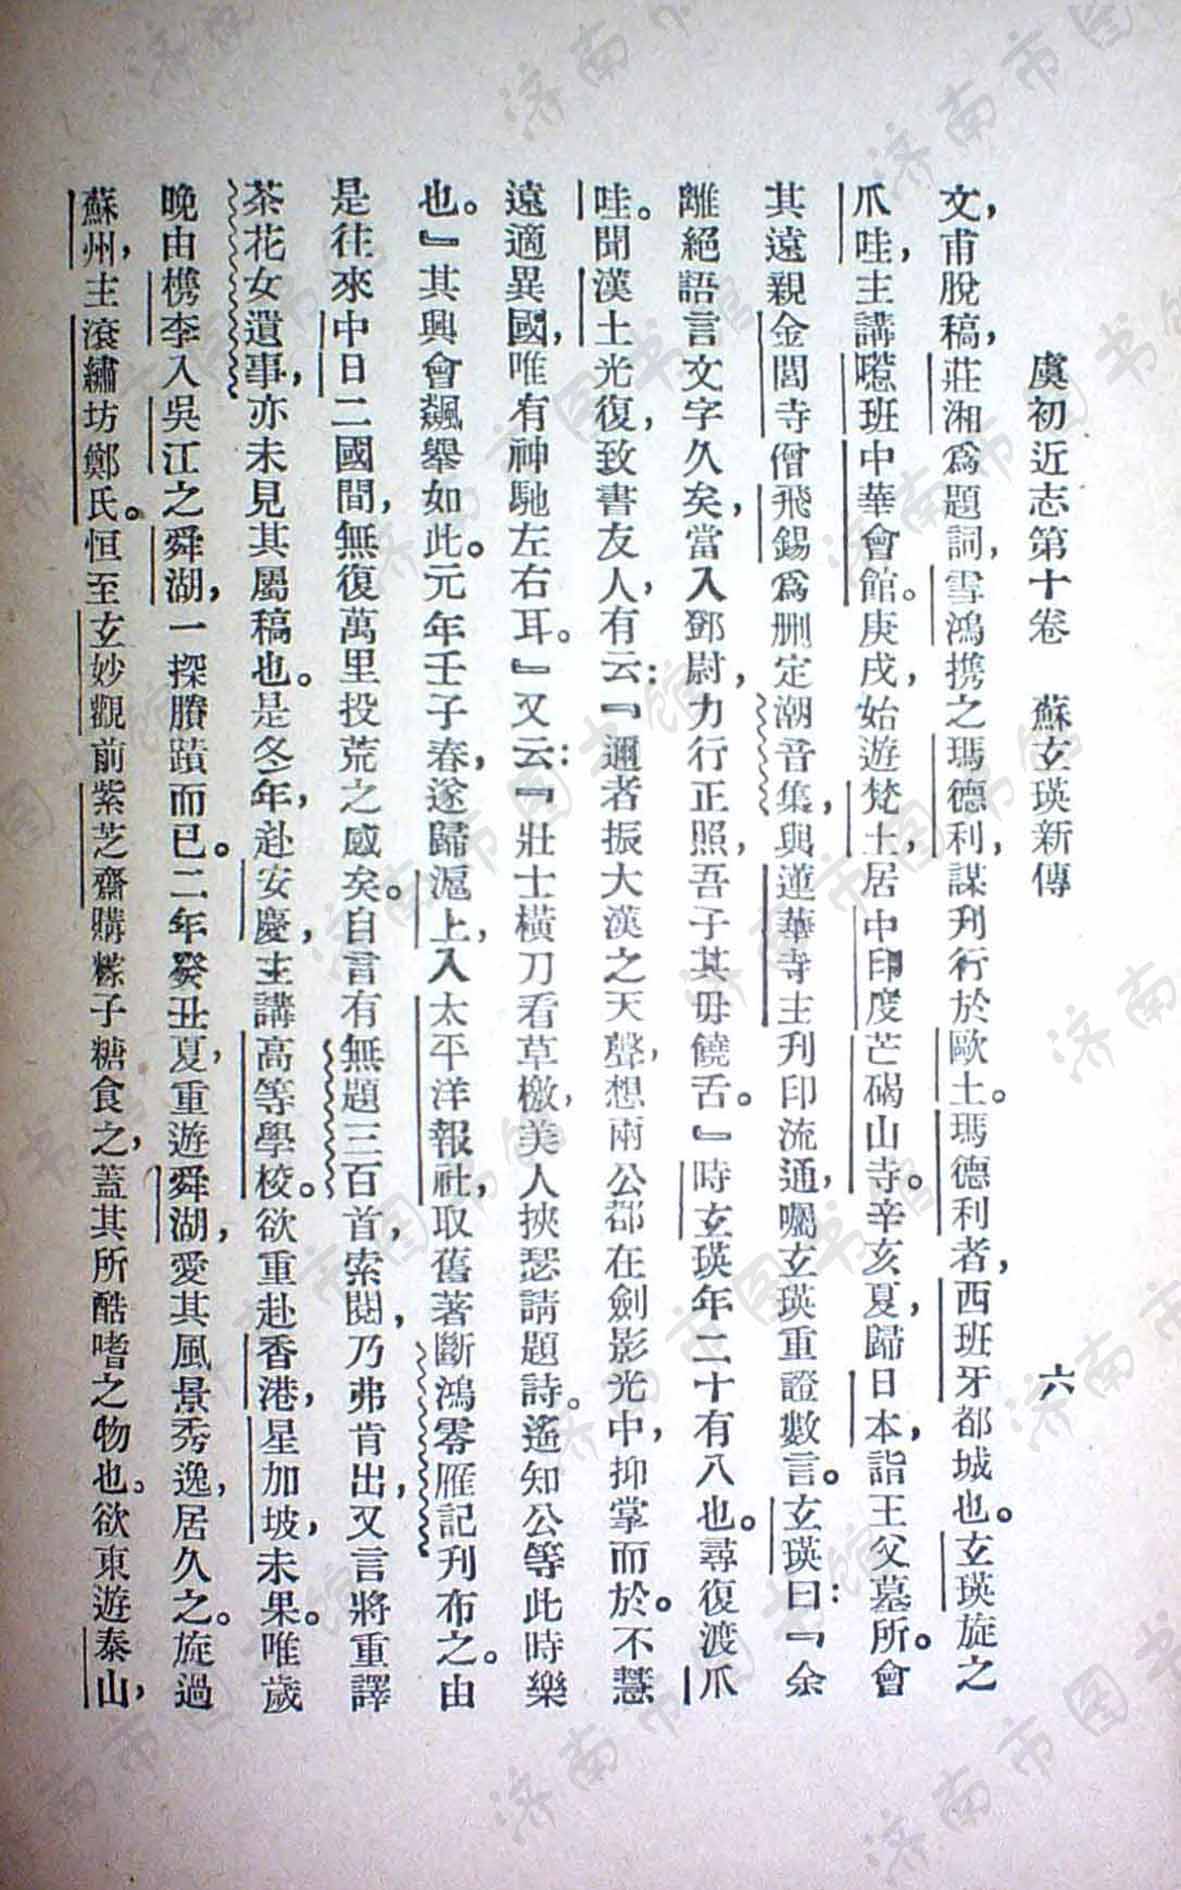 虞初近志第十卷　蘇玄瑛新傳　六
文，甫脫稿，莊湘爲題詞，雪鴻携之瑪德利，謀刋行於歐土。瑪德利者，西班牙都城也。玄瑛旋之
爪哇，主講噁班中華會館。庚戌，始遊梵土，居中印度芒碣山寺。辛亥夏，歸日本，詣王父墓所。會
其遠親金閣寺僧飛錫爲删定潮音集，與蓮華寺主刋印流通，囑玄瑛重證數言。玄瑛曰：『余
離絕語言文字久矣，當入鄧尉，力行正照，吾子其毋饒舌。』時玄瑛年二十有八也。尋復渡爪
哇。聞漢土光復，致書友人，有云：『邇者振大漢之天聲，想兩公都在劍影光中，抑掌而於。不慧
遠適異國，唯有神馳左右耳。』又云：『壯士橫刀看草檄，美人挾瑟請題詩。遙知公等此時樂
也。』其興會飆舉如此。元年壬子春，遂歸滬上，入太平洋報社，取舊著斷鴻零雁記刋布之。由
是往來中日二國間，無復萬里投荒之感矣。自言有無題三百首，索閱，乃弗肯出，又言將重譯
茶花女遺事，亦未見其屬稿也。是冬年，赴安慶，主講高等學校。欲重赴香港，星加坡，未果。唯歲
晚由檇李入吳江之舜湖，一探賸蹟而已。二年癸丑夏，重遊舜湖，愛其風景秀逸，居久之。旋過
蘇州，主滾繡坊鄭氏。恒至玄妙觀前紫芝齋購糉子糖食之，蓋其所酷嗜之物也。欲東遊泰山，
济南市图书馆